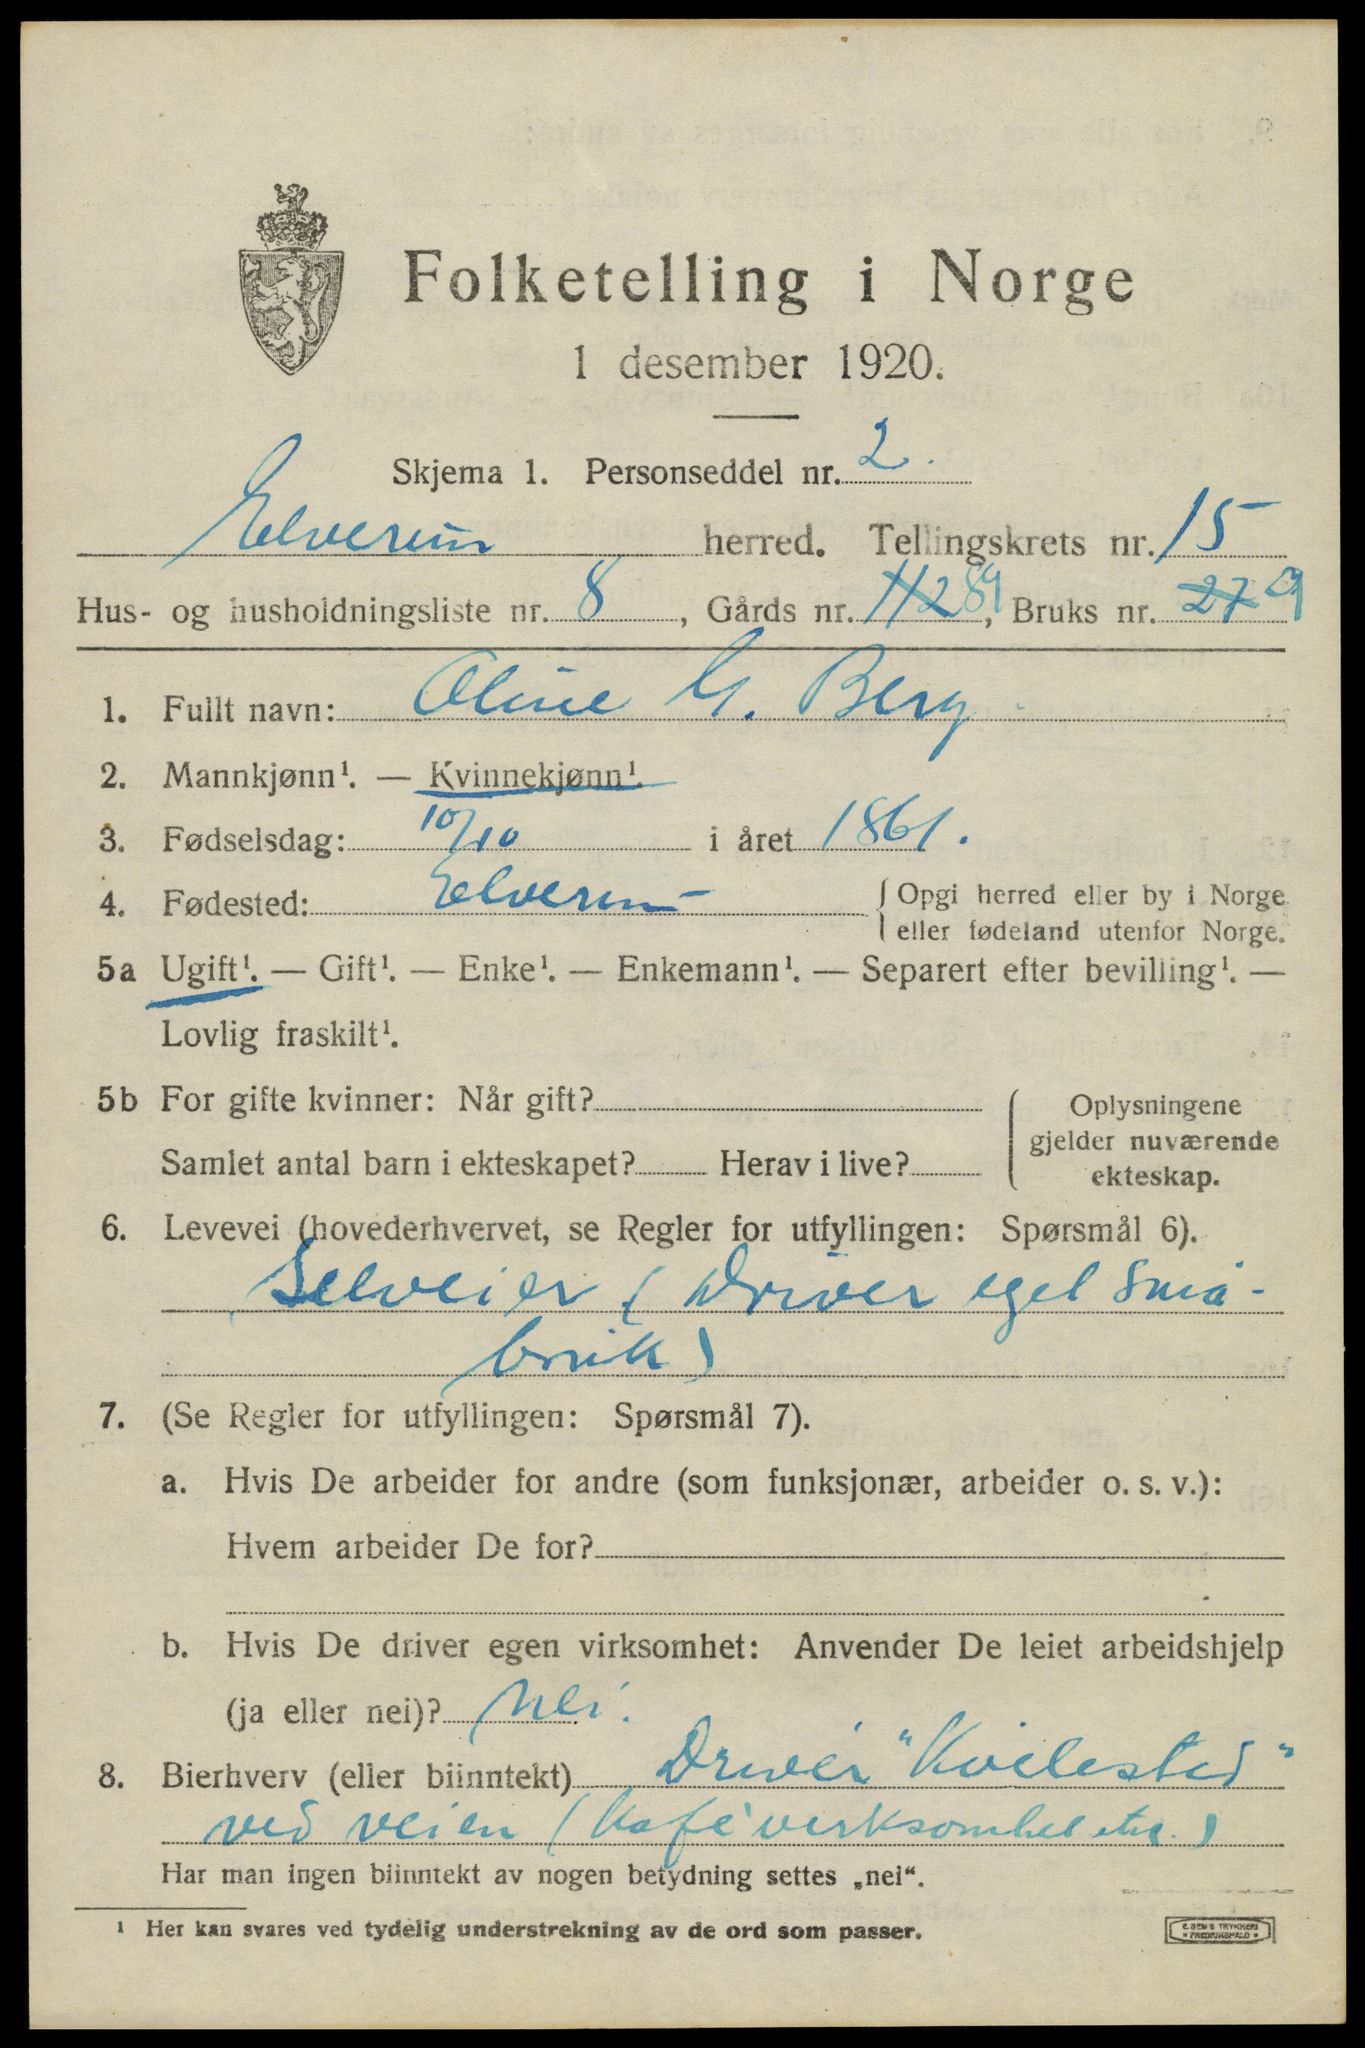 Folketelling i Norge
1 desember 1920.
Skjema 1. Personseddel nr. 2.
Elverum herred. Tellingskrets nr. 15
Hus- og husholdningsliste nr. 8, Gårds nr. 112 89, Bruks nr. 27 9
1. Fullt navn: Oline G. Berg
2. Mannkjønn¹. — Kvinnekjønn¹.
3. Fødselsdag: 10/10 i året 1861.
4. Fødested: Elverum { Opgi herred eller by i Norge
eller fødeland utenfor Norge.
5a Ugift¹. — Gift¹. — Enke¹. — Enkemann¹. — Separert efter bevilling¹. —
Lovlig fraskilt¹.
5b For gifte kvinner: Når gift?
Samlet antal barn i ekteskapet? Herav i live?
Oplysningene
gjelder nuværende
ekteskap.
6. Levevei (hovederhvervet, se Regler for utfyllingen: Spørsmål 6).
Selveier (Driver eget små-
bruk)
7. (Se Regler for utfyllingen: Spørsmål 7).
a. Hvis De arbeider for andre (som funksjonær, arbeider o. s. v.):
Hvem arbeider De for?
b. Hvis De driver egen virksomhet: Anvender De leiet arbeidshjelp
(ja eller nei)? nei.
8. Bierhverv (eller biinntekt) Driver "Kvilested"
ved veien (Kaféverksomhet etc.)
Har man ingen biinntekt av nogen betydning settes „nei“.
¹ Her kan svares ved tydelig understrekning av de ord som passer.
E. SEM'S TRYKKERI
FREDRIKSHALD